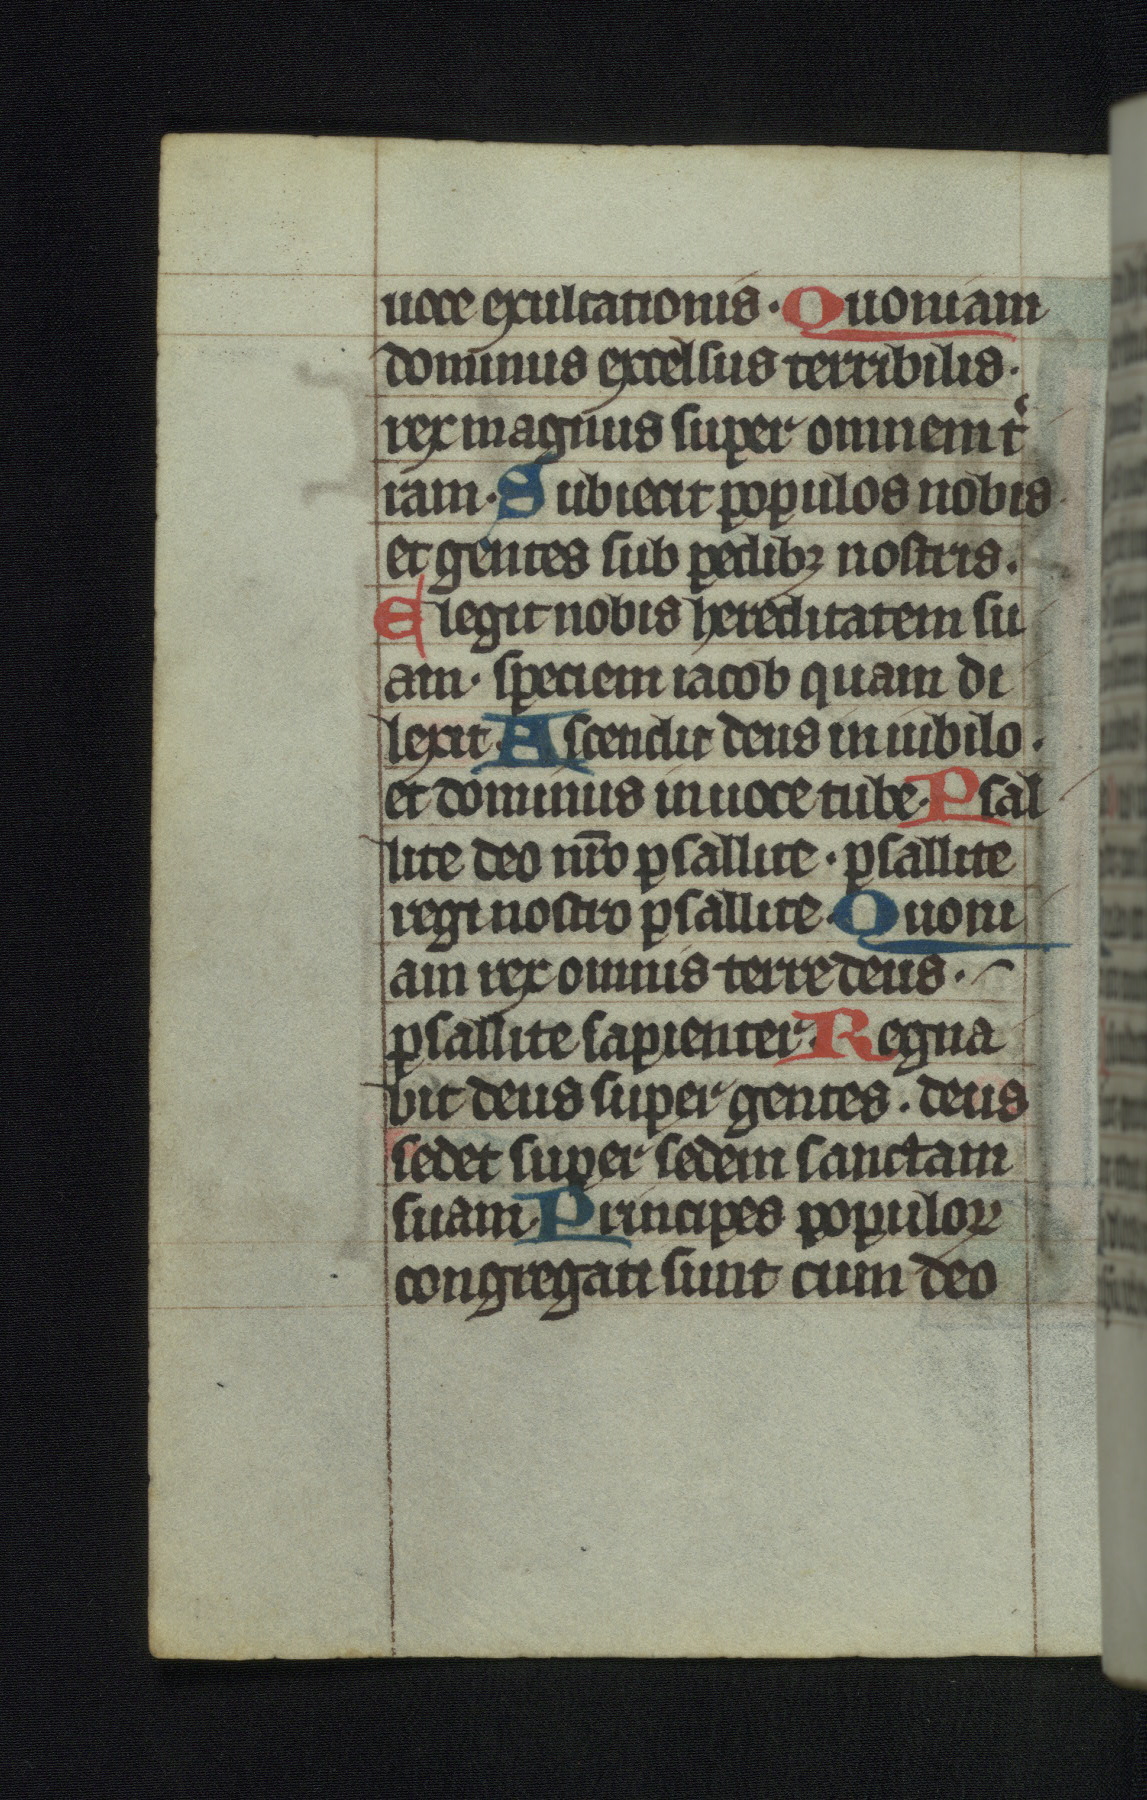 uoce exultationis · Quoniam
dominus excelsus terribilis ·
rex magnus super omnem t᷒
ram · Subiecit populos nobis
et gentes sub pedibꝫ nostris .
Elegit nobis hereditatem su
am · speciem iacob quam di
lexit · Ascendit deus in iubilo ·
et dominus in uoce tube · Psal
lite deo nr̄o psallite · psallite
regi nostro psallite · Quoni
am rex omnis terre deus ·
psallite sapienter · Regna
bit deus super gentes . deus
sedet super sedem sanctam
suam · Principes populoꝝ
congregati sunt cum deo